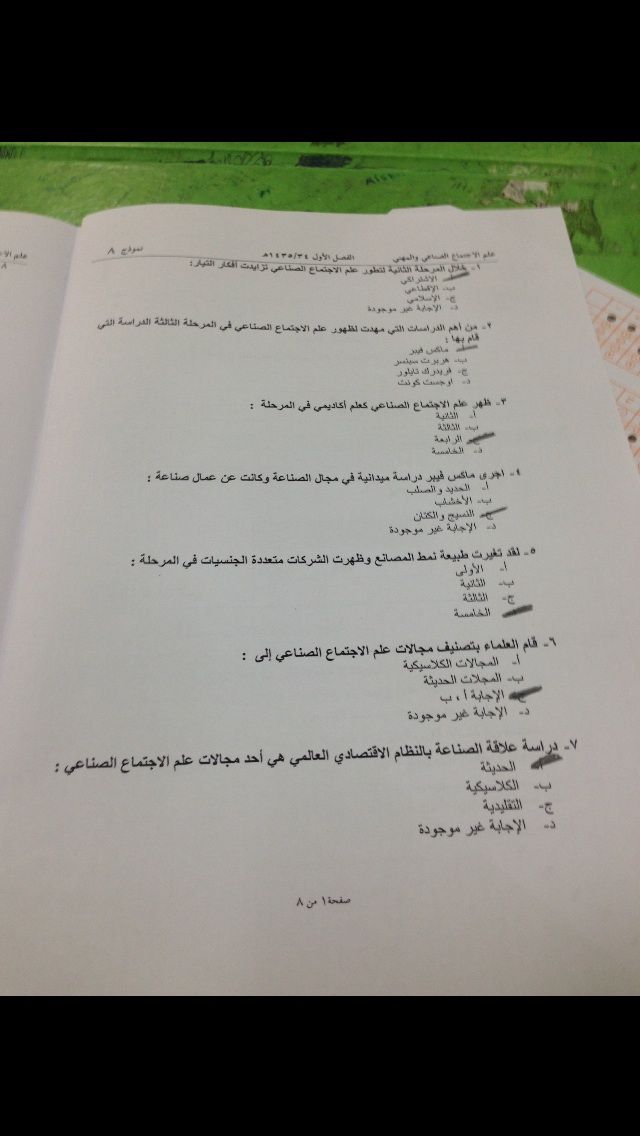 علم الاجتماع الصناعي والمهني الفصل الأول ١٤٣٥/٣٤هـ نموذج ٨
١- خلال المرحلة الثانية لتطور علم الاجتماع الصناعي تزايدت أفكار التيار:
الاشتراكي
ب- الإقطاعي
ج- الإسلامي
د- الإجابة غير موجودة
٢- من أهم الدراسات التي مهدت لظهور علم الاجتماع الصناعي في المرحلة الثالثة الدراسة التي
قام بها :
أ- ماكس فيبر
ب- هربرت سبنسر
ج- فريدرك تايلور
د- اوجست كونت
٣- ظهر علم الاجتماع الصناعي كعلم أكاديمي في المرحلة :
أ- الثانية
ب- الثالثة
ج- الرابعة
د- الخامسة
٤- اجرى ماكس فيبر دراسة ميدانية في مجال الصناعة وكانت عن عمال صناعة :
أ- الحديد والصلب
ب- الأخشاب
ج- النسيج والكتان
د- الإجابة غير موجودة
٥- لقد تغيرت طبيعة نمط المصانع وظهرت الشركات متعددة الجنسيات في المرحلة :
أ- الأولى
ب- الثانية
ج- الثالثة
الخامسة
٦- قام العلماء بتصنيف مجالات علم الاجتماع الصناعي إلى :
أ- المجالات الكلاسيكية
ب- المجلات الحديثة
ج- الإجابة أ ، ب
د- الإجابة غير موجودة
٧- دراسة علاقة الصناعة بالنظام الاقتصادي العالمي هي أحد مجالات علم الاجتماع الصناعي :
أ- الحديثة
ب- الكلاسيكية
ج- التقليدية
د- الإجابة غير موجودة
صفحة ١ من ٨
علم الا
٨